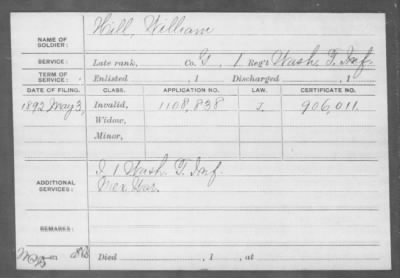 NAME OF SOLDIER: Hill, William
SERVICE: Late rank, Co. G, 1 Reg't Wash. T. Inf.
TERM OF SERVICE: Enlisted , 1 Discharged , 1
DATE OF FILING. CLASS. APPLICATION NO. LAW. CERTIFICATE NO.
1892 May 3, Invalid, 1108,838 J. 906,011.
Widow,
Minor,
ADDITIONAL SERVICES: 1 Wash. T. Inf.
Mex War.
REMARKS:
Died , 1 , at